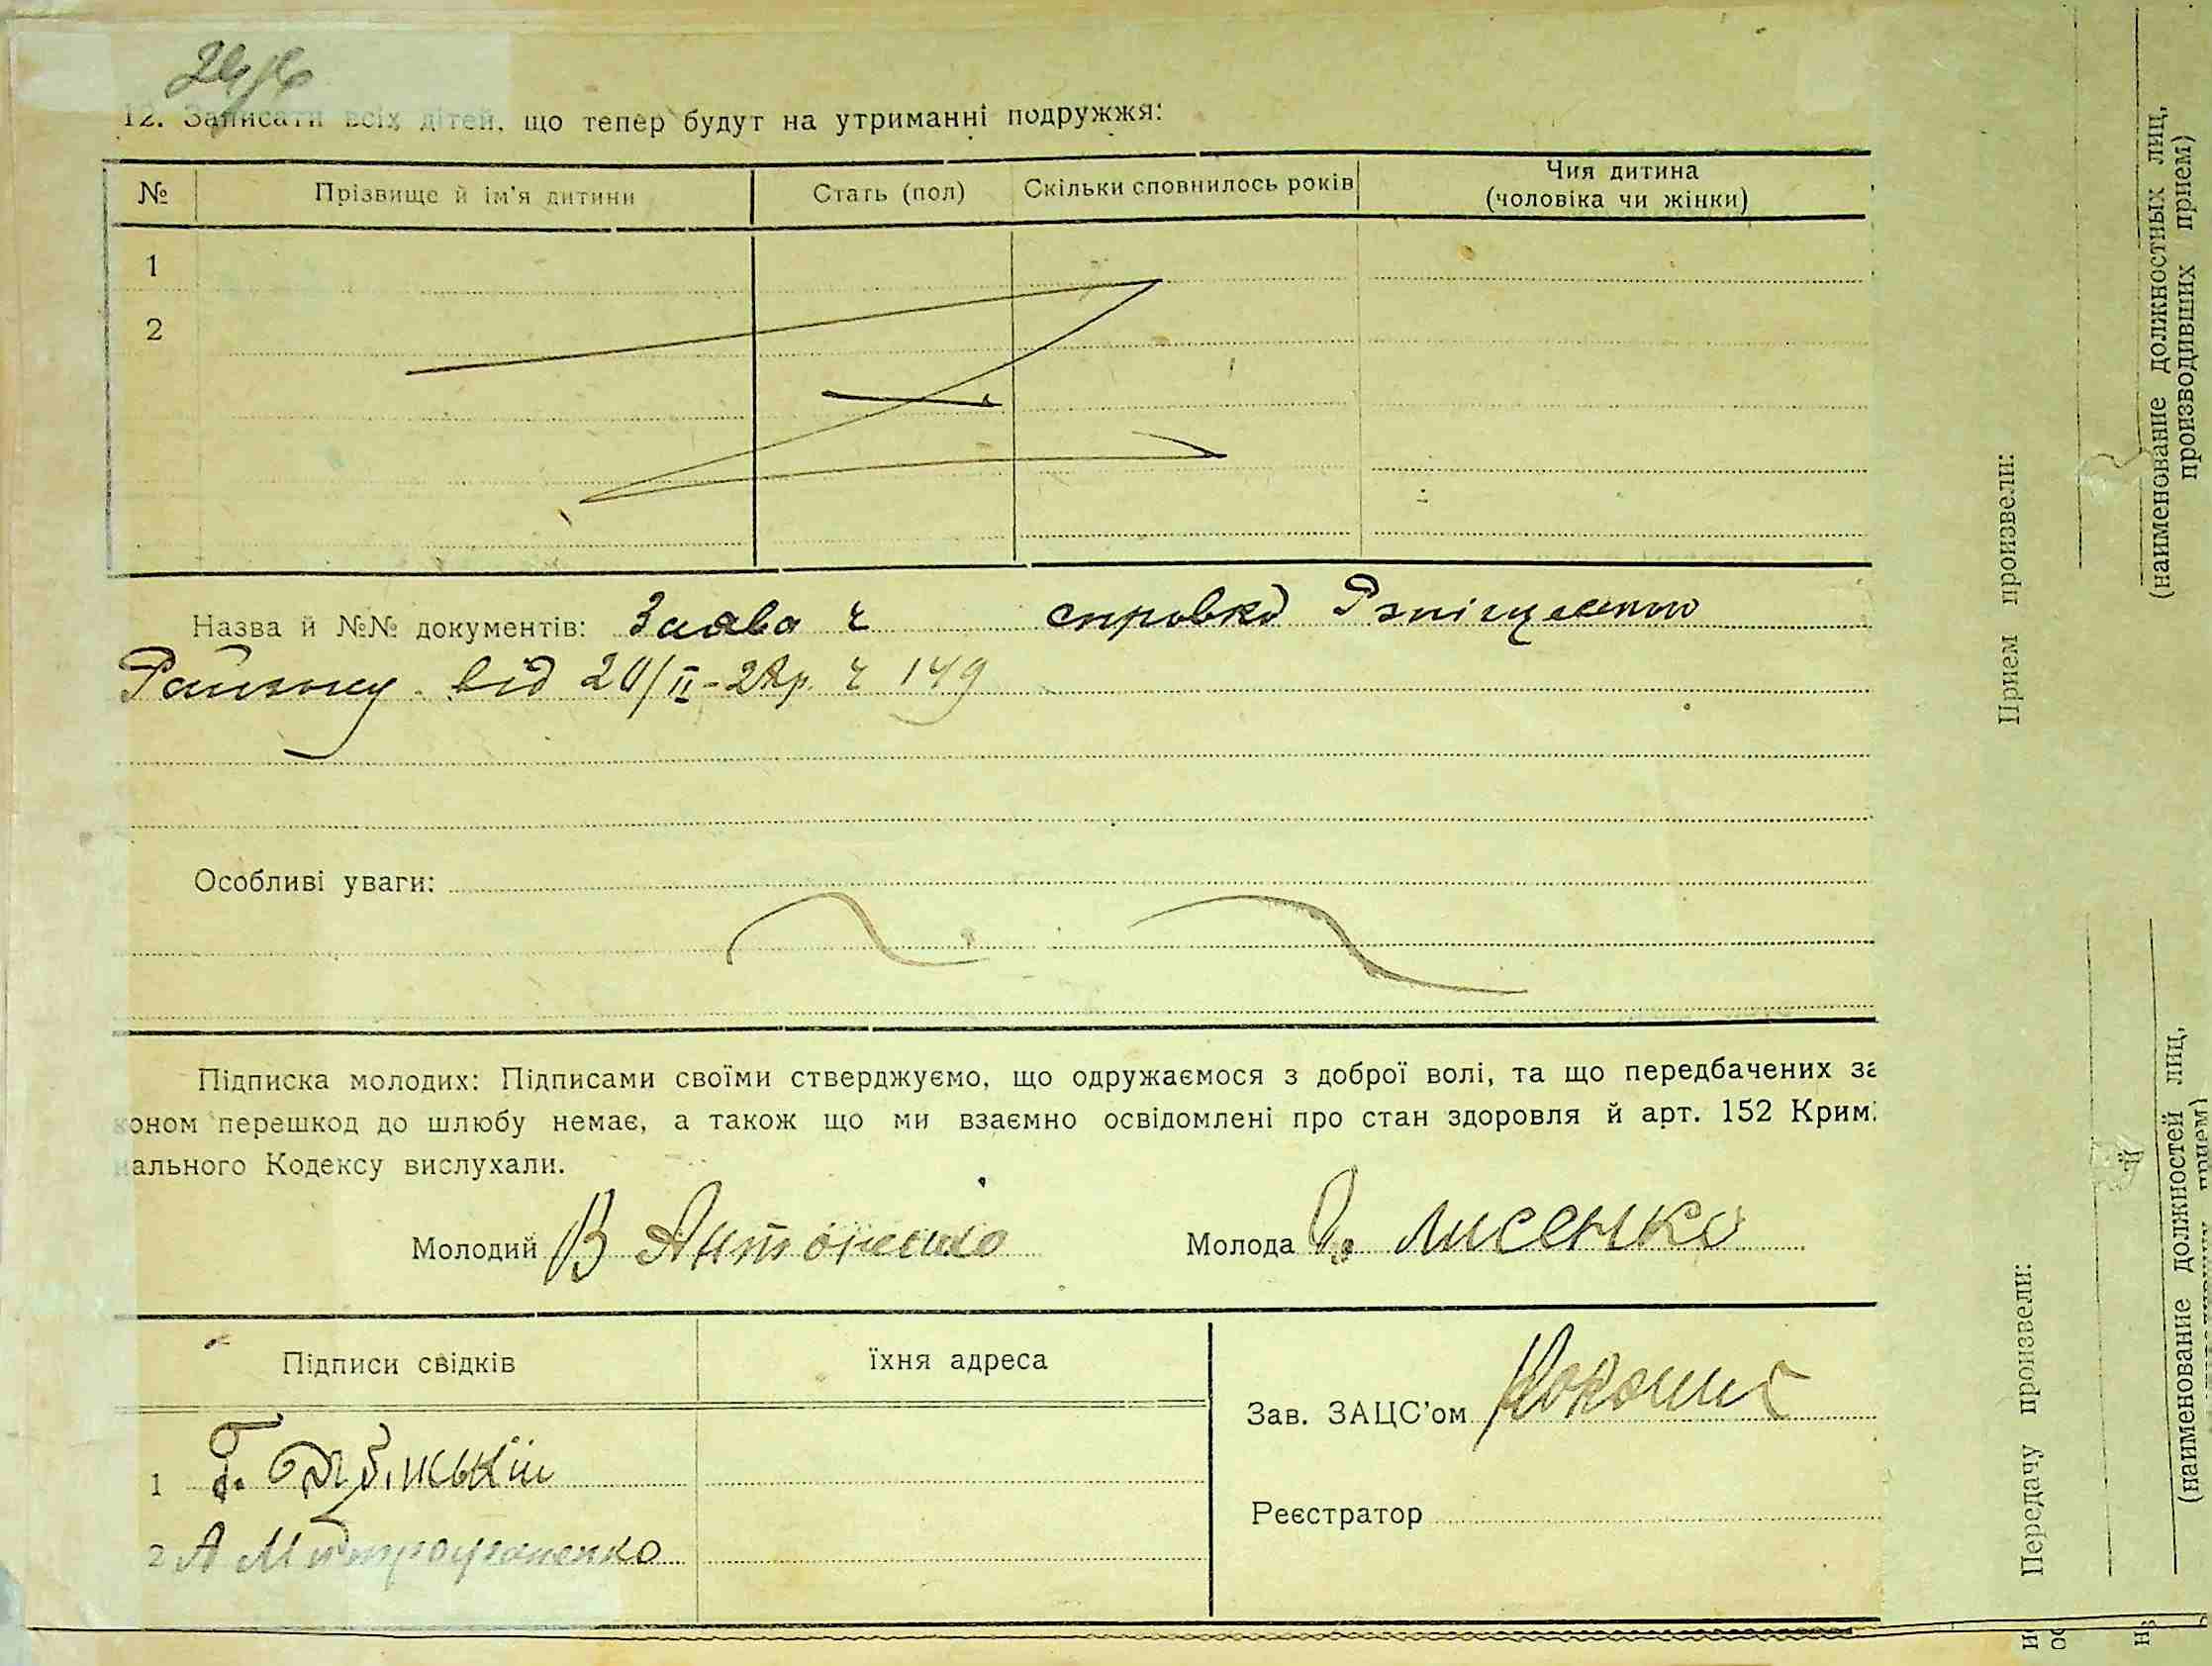 12. Записати всіх дітей, що тепер будут на утриманні подружжя:
№ Прізвище й ім'я дитини Стать (пол) Скільки сповнилось років Чия дитина (чоловіка чи жінки)
1
2
Назва й №№ документів: Заява ч справка
від 20/II-28р. ч 149
Особливі уваги:
Підписка молодих: Підписами своїми стверджуємо, що одружаємося з доброї волі, та що передбачених за
коном перешкод до шлюбу немає, а також що ми взаємно освідомлені про стан здоровля й арт. 152 Крим.
нального Кодексу вислухали.
Молодий В Антоненко Молода Лисенко
Підписи свідків їхня адреса
Зав. ЗАЦС'ом
1 Г.
Реєстратор
2 А Митрофаненко
Прием произвели:
(наименование должностных лиц,
производивших прием)
Передачу произвели:
(наименование должностей лиц,
прием)